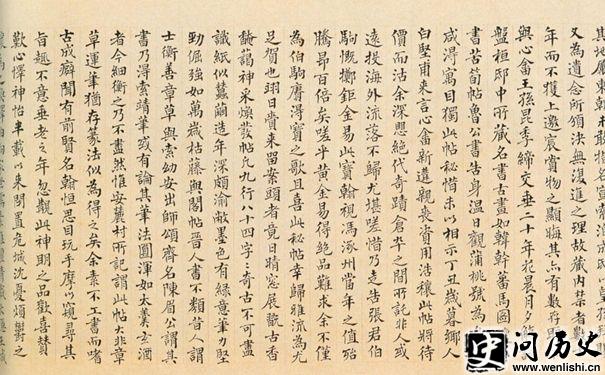 又為遺念所頒決無復進之理故藏內禁者數
年而不獲上邀宸賞物之顯晦其亦有數存耶
與心畬王孫昆季締交垂二十年花晨月夕觴
盤桓邸中所藏名書古畫如韓幹蕃馬圖
書苦筍帖魯公書告身溫日觀蒲桃號為
咸得寓目獨此帖秘惜未以相示丁丑歲暮鄉人
白堅甫來言心畬新遘親喪資用浩穰此帖將待
價而沽余深懼絕代奇蹟倉卒之間所託非人或
遠投海外流落不歸尤堪嗟惜乃走告張君伯
駒慨擲鉅金易此寶翰視馮涿州當年之值殆
騰昂百倍矣嗟乎黃金易得絕品難求余不僅
為伯駒賡得寶之歌且喜此秘帖幸歸雅流為尤
足賀也翊日賫來留案頭者竟日晴窗展翫古香
馣藹神采煥發帖凡九行八十四字字奇古不可盡
識紙似蠶繭造年深頗渝敝墨色有綠意筆力堅
勁倔強如萬歲枯藤與閣帖晉人書不類昔人謂
士衡善章草與索幼安出師頌齊名陳眉公謂其
書乃得索靖筆或有論其筆法圓渾如太羹玄酒
者今細衡之乃不盡然惟安麓村所記謂此帖大非章
草運筆猶存篆法似為得之矣余素不工書而嗜
古成癖聞有前賢名翰恒思目玩手摩以窺尋其
旨趣不意垂老之年忽覩此神明之品歡喜贊
歎心懌神怡半載以來閉置危城沈憂煩鬱之
问历史
www.wenlishi.cn